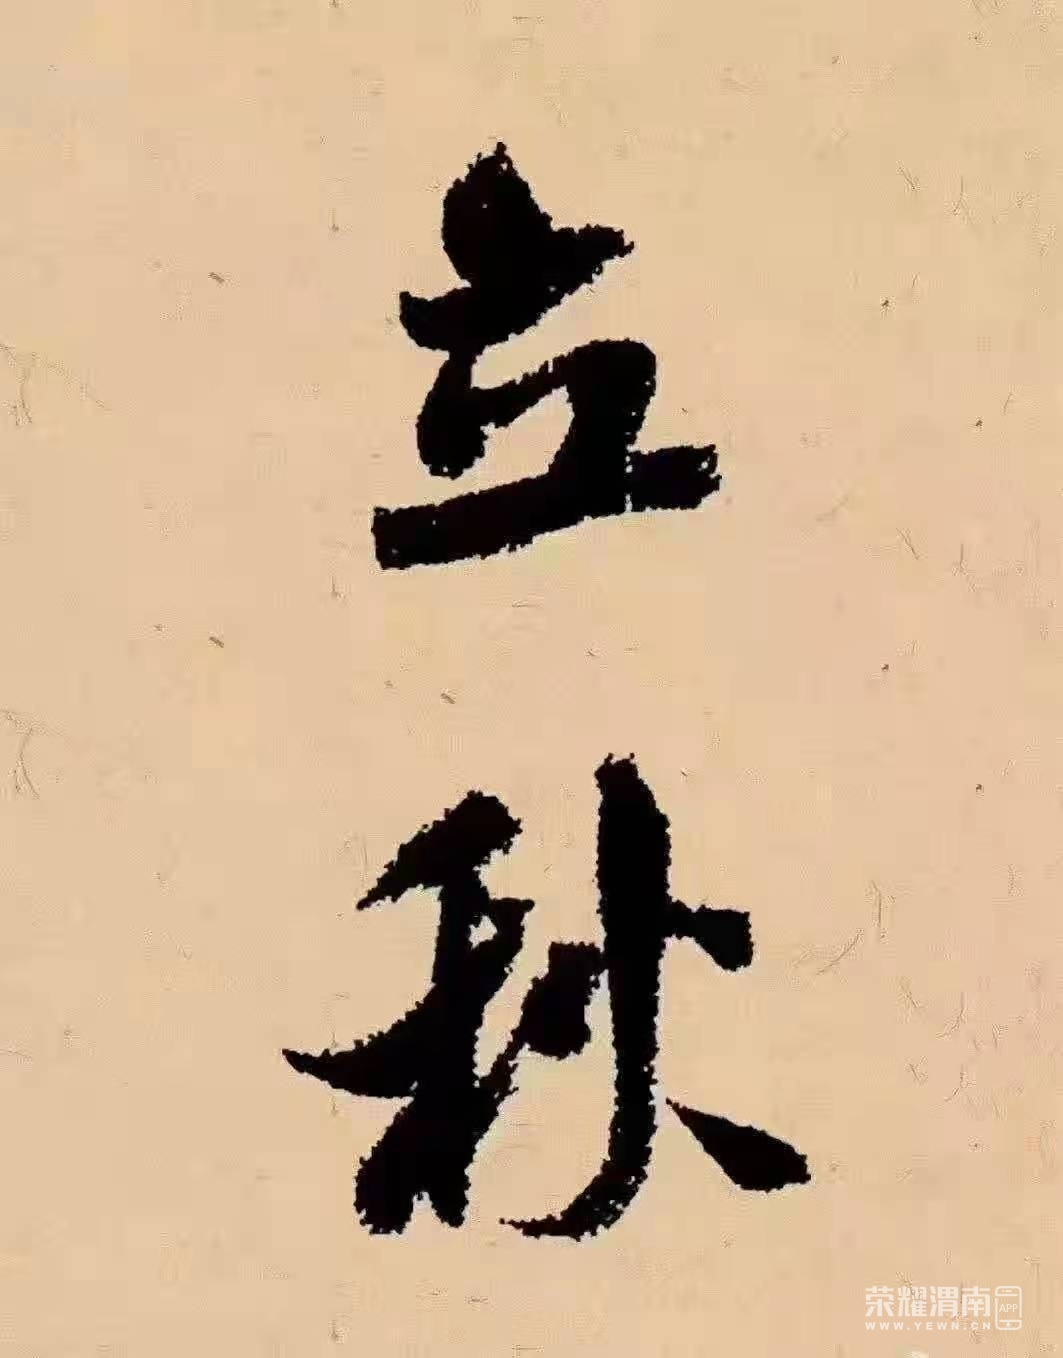 立
秋
荣耀渭南 APP
WWW.YEWN.CN